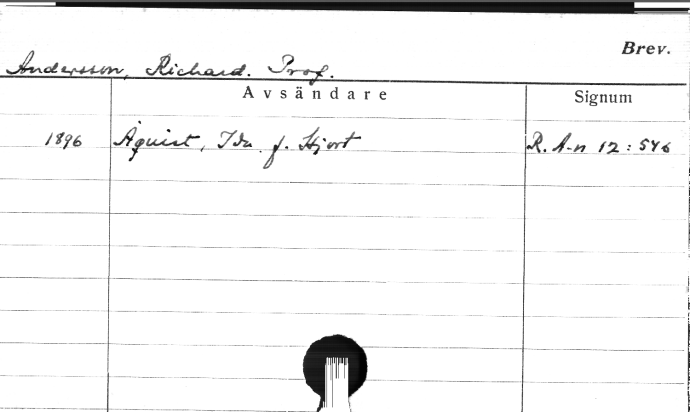 Brev.
Andersson, Richard. Prof.
Avsändare Signum
1896 Åquist, Ida f. Hjort R. A-n 12:546